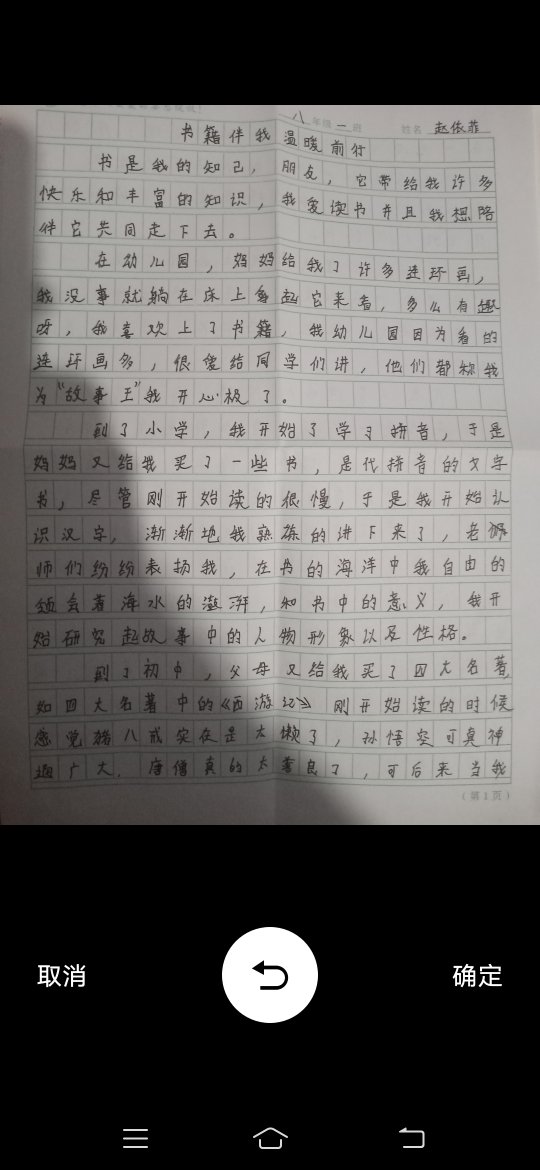 八年级一班 姓名 赵依菲
书籍伴我温暖前行
书是我的知己，朋友，它带给我许多
快乐和丰富的知识，我爱读书并且我想陪
伴它共同走下去。
在幼儿园，妈妈给我了许多连环画，
我没事就躺在床上拿起它来看，多么有趣
呀，我喜欢上了书籍，我幼儿园因为看的
连环画多，很爱给同学们讲，他们都称我
为“故事王”我开心极了。
到了小学，我开始了学习拼音，于是
妈妈又给我买了一些书，是代拼音的文字
书，尽管刚开始读的很慢，于是我开始认
识汉字，渐渐地我熟练的讲下来了，老
师们纷纷表扬我，在书的海洋中我自由的
领会着海水的澎湃，和书中的意义，我开
始研究起故事中的人物形象以及性格。
到了初中，父母又给我买了四大名著，
如四大名著中的《西游记》刚开始读的时候
感觉猪八戒实在是太懒了，孙悟空可真神
通广大．唐僧真的太善良了，可后来当我
（第1页）
取消
确定